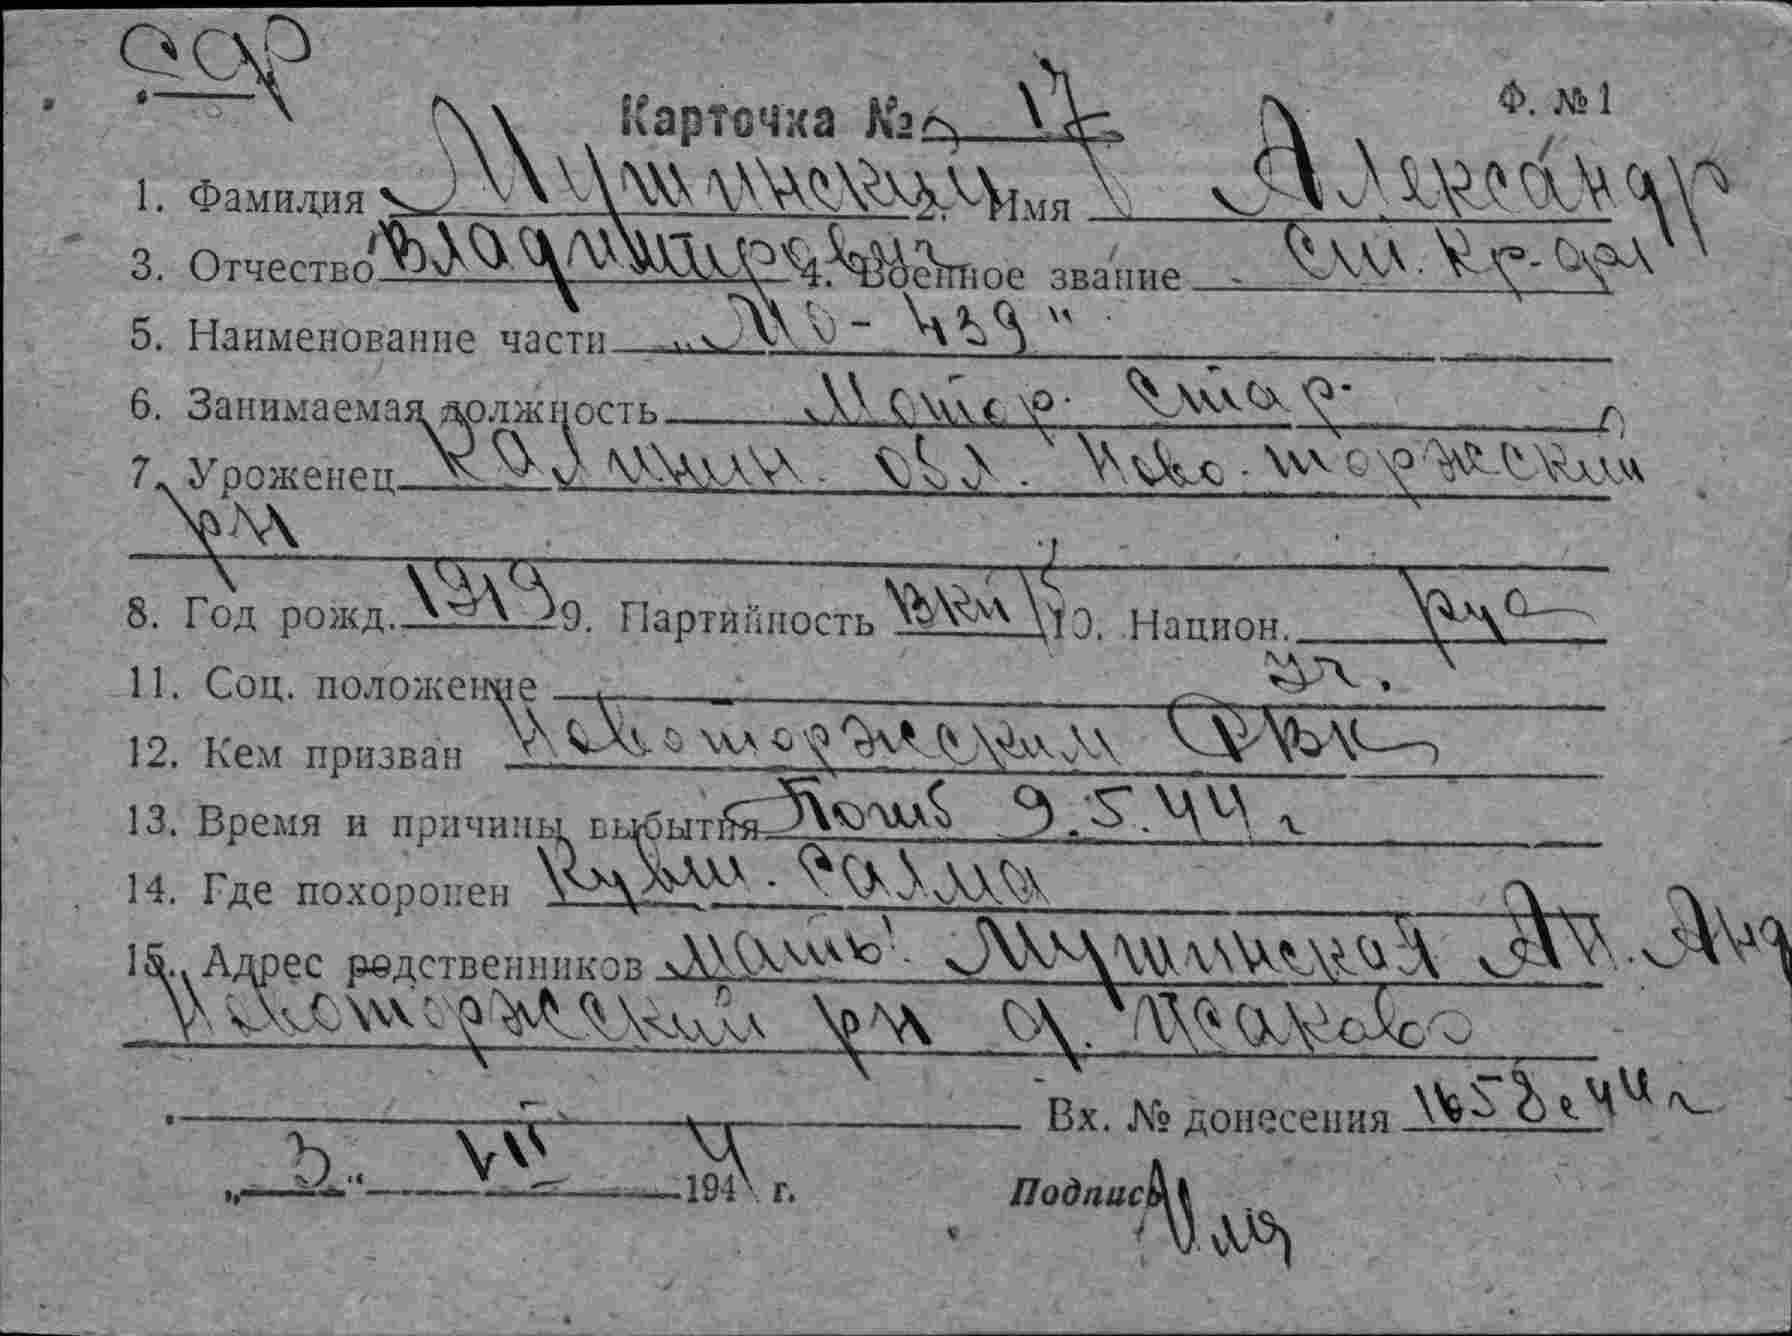 Карточка № 17 Ф. №1
1. Фамилия Мушинский 2. Имя Александр
3. Отчество Владимирович 4. Военное звание Ст. кр-арм
5. Наименование части „МО-439"
6. Занимаемая должность Мотор. стар.
7. Уроженец Калинин. обл. Ново-торжский
рн
8. Год рожд. 1919 9. Партийность ВКП/б 10. Национ. рус
11. Соц. положение уч.
12. Кем призван Новоторжским РВК
13. Время и причины выбытия Погиб 9.5.44 г
14. Где похоронен Кувш. салма
15. Адрес родственников мать: Мушинская Ан. Анд
Новоторжский рн д. Исаково
Вх. № донесения 1658с 44 г
„3" VII 1944 г.
Подпись